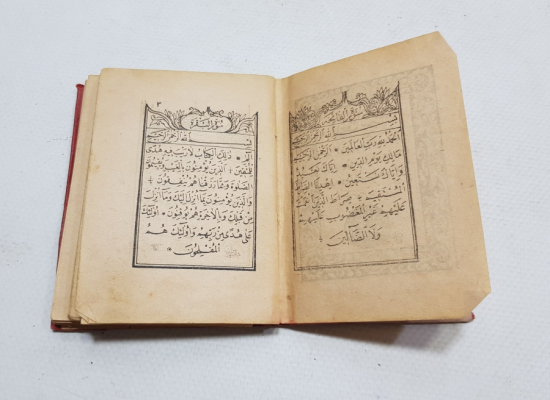 سورة الفاتحة
بسم الله الرحمن الرحيم
الحمد لله رب العالمين * الرحمن الرحيم
مالك يوم الدين * اياك نعبد
واياك نستعين * اهدنا الصراط
المستقيم * صراط الذين انعمت
عليهم غير المغضوب عليهم
ولا الضالين
٣
سورة البقرة
بسم الله الرحمن الرحيم
الم * ذلك الكتاب لا ريب فيه هدى
للمتقين * الذين يؤمنون بالغيب ويقيمون
الصلوة ومما رزقناهم ينفقون *
والذين يؤمنون بما انزل اليك وما انزل
من قبلك وبالاخرة هم يوقنون * اولئك
على هدى من ربهم واولئك هم
المفلحون *